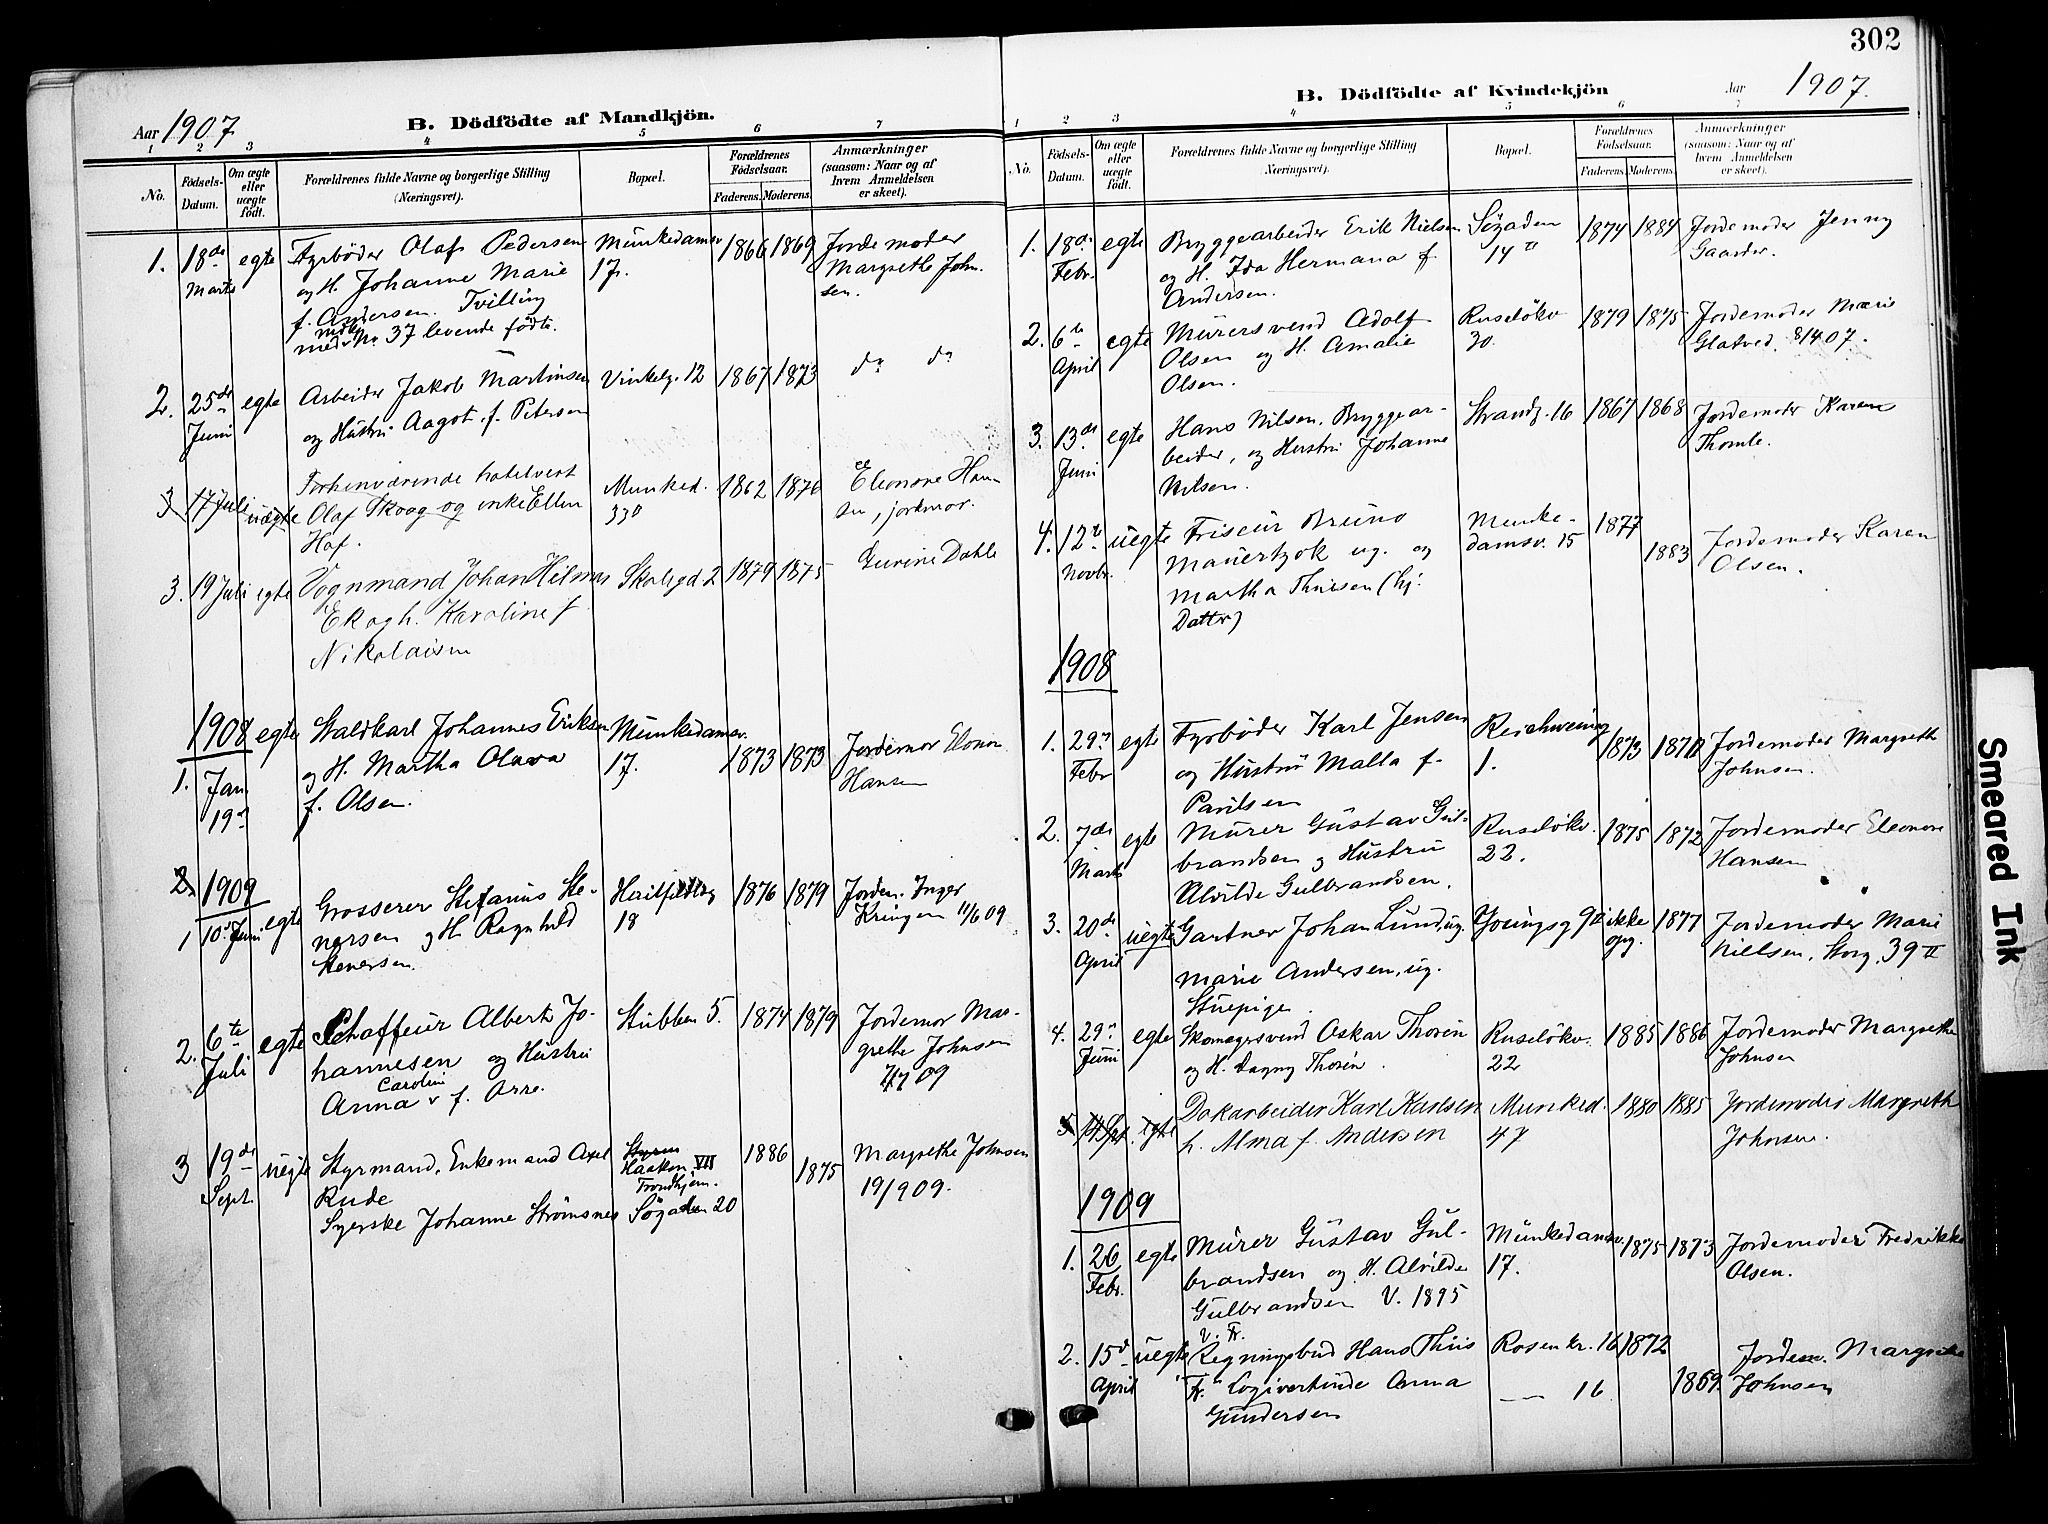 302
Aar 1907
B. Dödfödte af Mandkjön.
1 2 3 4 5 6 7
No.
Födsels-Datum.
Om ægte eller uægte födt.
Forældrenes fulde Navne og borgerlige Stilling (Næringsvei).
Bopæl.
Forældrenes Födselsaar.
Faderens. Moderens.
Anmærkninger (saasom: Naar og af hvem Anmeldelsen er skeet).
1. 18de egte Fyrbøder Olaf Pedersen Munkedamsv 1866 1869 Jordemoder
Marts og H. Johanne Marie 17. Margrethe John-
f. Andersen. Tvilling sen.
med No 37 levende fødte.
2. 25de egte Arbeider Jakob Martinsen Vinkelg. 12 1867 1873 do do
Juni og Hustru Aagot f. Petersen
3 17 Juli uægte Forhenværende hotelvert Munked. 1862 1876 Eleonore Han-
Olaf Skoog og enke Ellen 33 sen, jordmor.
Hof.
3. 19 Juli egte Vognmand Johan Hilmar Skolegd 2 1879 1875 Gurine Dahle
Ek og h. Karoline f
Nikolaisen
1908 egte Staldkarl Johannes Eriksen Munkedamsv. 1873 1873 Jordemor Elonor
1. Jan. og H. Martha Olava 17. Hansen
19de f. Olsen.
1909
1 10de Juni egte Grosserer Stefanus Ste- 18 1876 1879 Jordem. Inger
nersen og H. Ragnhild Kringen 11/6 09
Stenersen.
2. 6te egte Schaffeur Albert Jo- Stubben 5. 1874 1879 Jordemor Mar-
Juli hannesen og Hustru grethe Johnsen
Caroline 7/7 09
Anna f. Arre.
3 19de uegte Styrmand, Enkemand Axel Haakon VII 1886 1875 Margrethe Johnsen
Sept. Rude Trondhjem. 19/9 09.
Syerske Johanne Strømsnes Søgaden 20
B. Dödfödte af Kvindekjön
Aar 1907.
1 2 3 4 5 6 7
No.
Födsels-Datum.
Om ægte eller uægte födt.
Forældrenes fulde Navne og borgerlige Stilling (Næringsvei).
Bopæl.
Forældrenes Födselsaar.
Faderens. Moderens.
Anmærkninger (saasom: Naar og af hvem Anmeldelsen er skeet).
1. 18de egte Bryggearbeider Erik Nielsen Søgaden 1874 1884 Jordemoder Jenny
Febr. og H. Ida Hermana f. 14 Gaarder.
Andersen.
2. 6te egte Murersvend Adolf Ruseløkv 1879 1875 Jordemoder Marie
April Olsen og H. Amalie 30. Glatved. 8/4 07.
Olsen.
3. 13de egte Hans Nilsen, Bryggear- Strandg. 16 1867 1868 Jordemoder Karen
Juni beider, og Hustru Johanne Thomle.
Nilsen.
4. 12te uegte Friseur Bruno Munke- 1877 1883 Jordemoder Karen
Novbr. ug. og damsv. 15 Olsen.
Martha Thuesen (hj.
Datter)
1908
1. 29de egte Fyrbøder Karl Jensen Reichweing 1873 Jordemoder Margrethe
Febr og Hustru Malla f. 1. Johnsen.
Paulsen
2. 7de egte Murer Gustav Gul- Ruseløkv. 1875 1872 Jordemoder Eleonore
Marts brandsen og Hustru 22. Hansen
Alvilde Gulbrandsen.
3. 20de uegte Gartner Johan Lund, ug. Youngsg 9 ikke 1877 Jordemoder Marie
April Marie Andersen, ug. opg. Nielsen, Storg. 39 II
Stuepige.
4. 29de egte Skomagersvend Oskar Thorén Ruseløkv. 1885 1886 Jordemoder Margrethe
Juni og H. Dagny Thorén. 22 Johnsen
5 14 Spt. egte Dokarbeider Karl Karlsen Munked. 1880 1885 Jordemoder Margreth
h. Alma f. Andersen 47 Johnsen.
1909
1. 26 egte Murer Gustav Gul- Munkedamsv. 1875 1873 Jordemoder Fredrikke
Febr. brandsen og H. Alvilde 17. Olsen.
Gulbrandsen V. 1895
V. Fr.
2. 15de uegte Regningsbud Hans Thiis Rosenkr. 16 1872 Jordem. Margrethe
April Fr. Logivertinde Anna — 16 1869. Johnsen
Gundersen
Smeared Ink